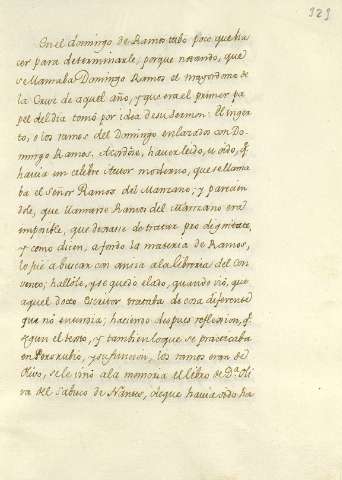 323
En el domingo de Ramos tubo poco que ha
cer para determinarle, porque notando, que
se llamaba Domingo Ramos el mayordomo de
la Cruz de aquel año, y que era el primer pa
pel del dia tomó por idea de su sermon: El inger
to, o los ramos del Domingo enlazados con Do-
mingo Ramos. Acordóse, haver leido, u oido, q.
havia un celebre Autor moderno, que se llama
ba el señor Ramos del Manzano; y parecien
dole, que llamarse Ramos del Manzano era
imposible, que dexase de tratar pro dignitate,
y como dicen, a fondo la materia de Ramos,
lo fue a buscar con ansia a la libreria del Con
vento; hallóle, y se quedó elado, quando vió, que
aquel docto Escritor trataba de cosa diferente
que nó entendia; haciendo despues reflexion, q.
segun el texto, y tambien lo que se practicaba
en Pero rubio, y su funcion, los ramos eran de
Olivo, se le vinó a la memoria el libro de D.ª Oli
va del Sabuco de Nantes, de que havia oido ha